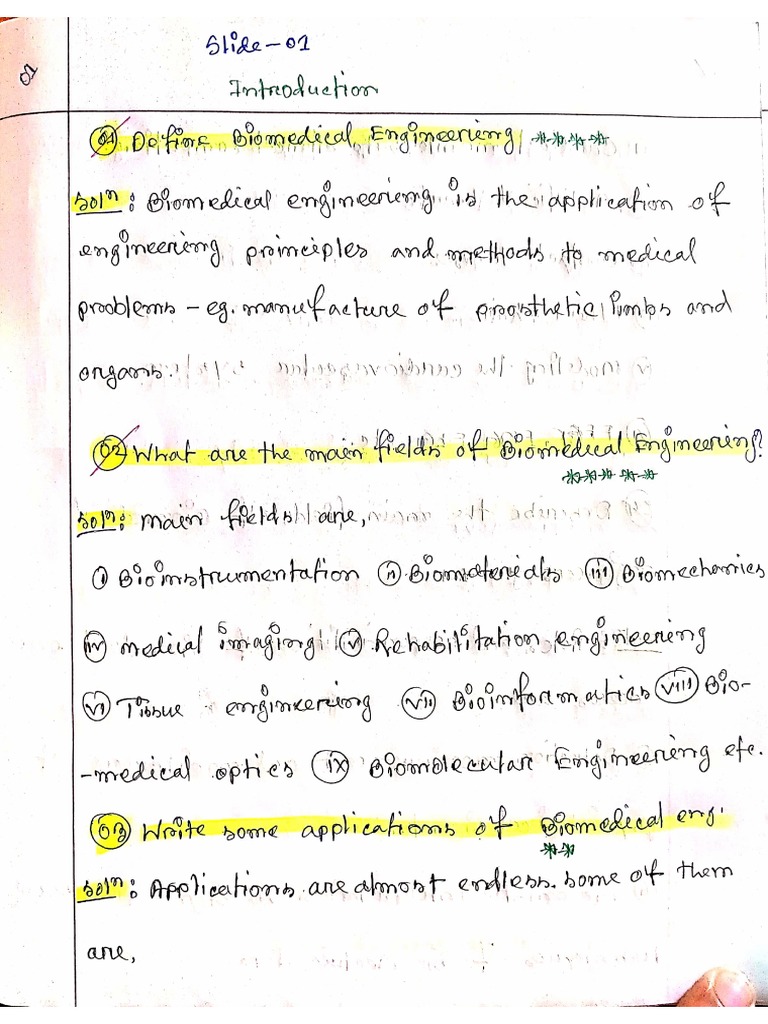 01
Slide-01
Introduction
01 Define Biomedical Engineering ****
Solⁿ: Biomedical engineering is the application of
engineering principles and methods to medical
problems - eg. manufacture of prosthetic limbs and
organs.
02 What are the main fields of Biomedical Engineering?
****
Solⁿ: main fields are,
i Bioinstrumentation ii Biomaterials iii Biomechanics
iv medical imaging v Rehabilitation engineering
vi Tissue engineering vii Bioinformatics viii Bio-
-medical optics ix Biomolecular Engineering etc.
03 Write some applications of Biomedical eng.
**
Solⁿ: Applications are almost endless. some of them
are,